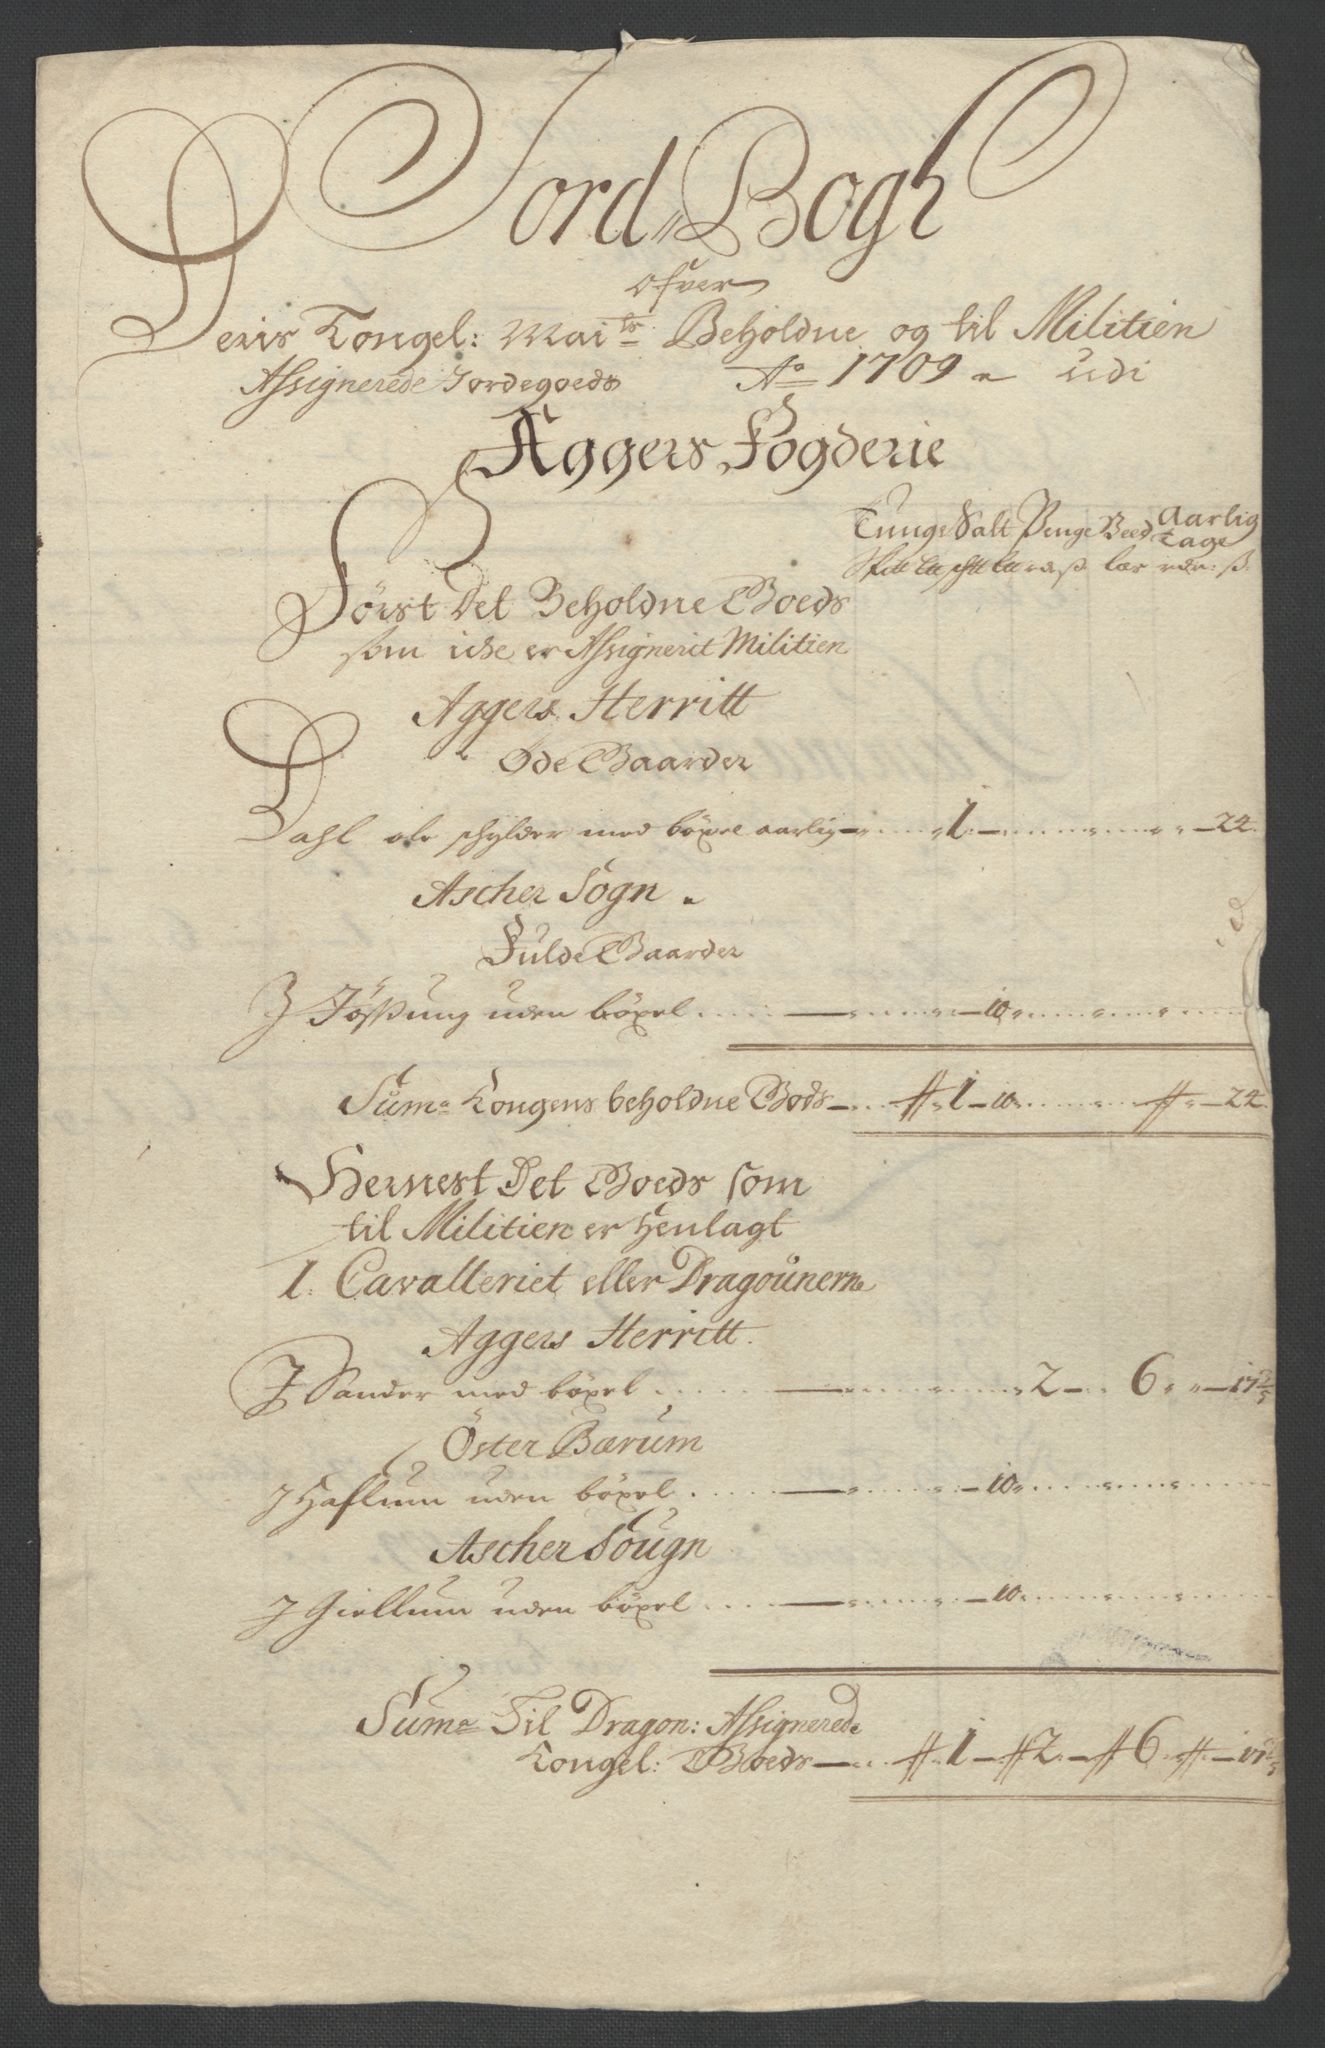 Jord Bogh
ofver
Deris Kongel: Mai.ts Beholdne og til Militien
Assignerede Jordegoeds Ao 1709 udi
Aggers Fogderie
Tunge Salt Penge Veed Aarlig Tage
Först Det Beholdne Goeds
som icke er Assignerit Militien
Aggers Herritt
Öde Gaarder
Dahl ole schylder med böxel aarlig 1 24
Ascher Sogn
Fulde Gaarder
J Jössung uden böxel 10
Suma Kongens beholdne Gods 1 10 24
Hernest Det Goeds som
til Militien er Henlagt
1. Cavalleriet eller Dragounerne
Aggers Herritt
J Sander med böxel 2 6 17
Öster Bærum
J Haslum uden böxel 10
Ascher Sougn
J Giellum uden böxel 10
Suma Til Dragon: Assignerede
Kongel: Goeds 1 2 6 17